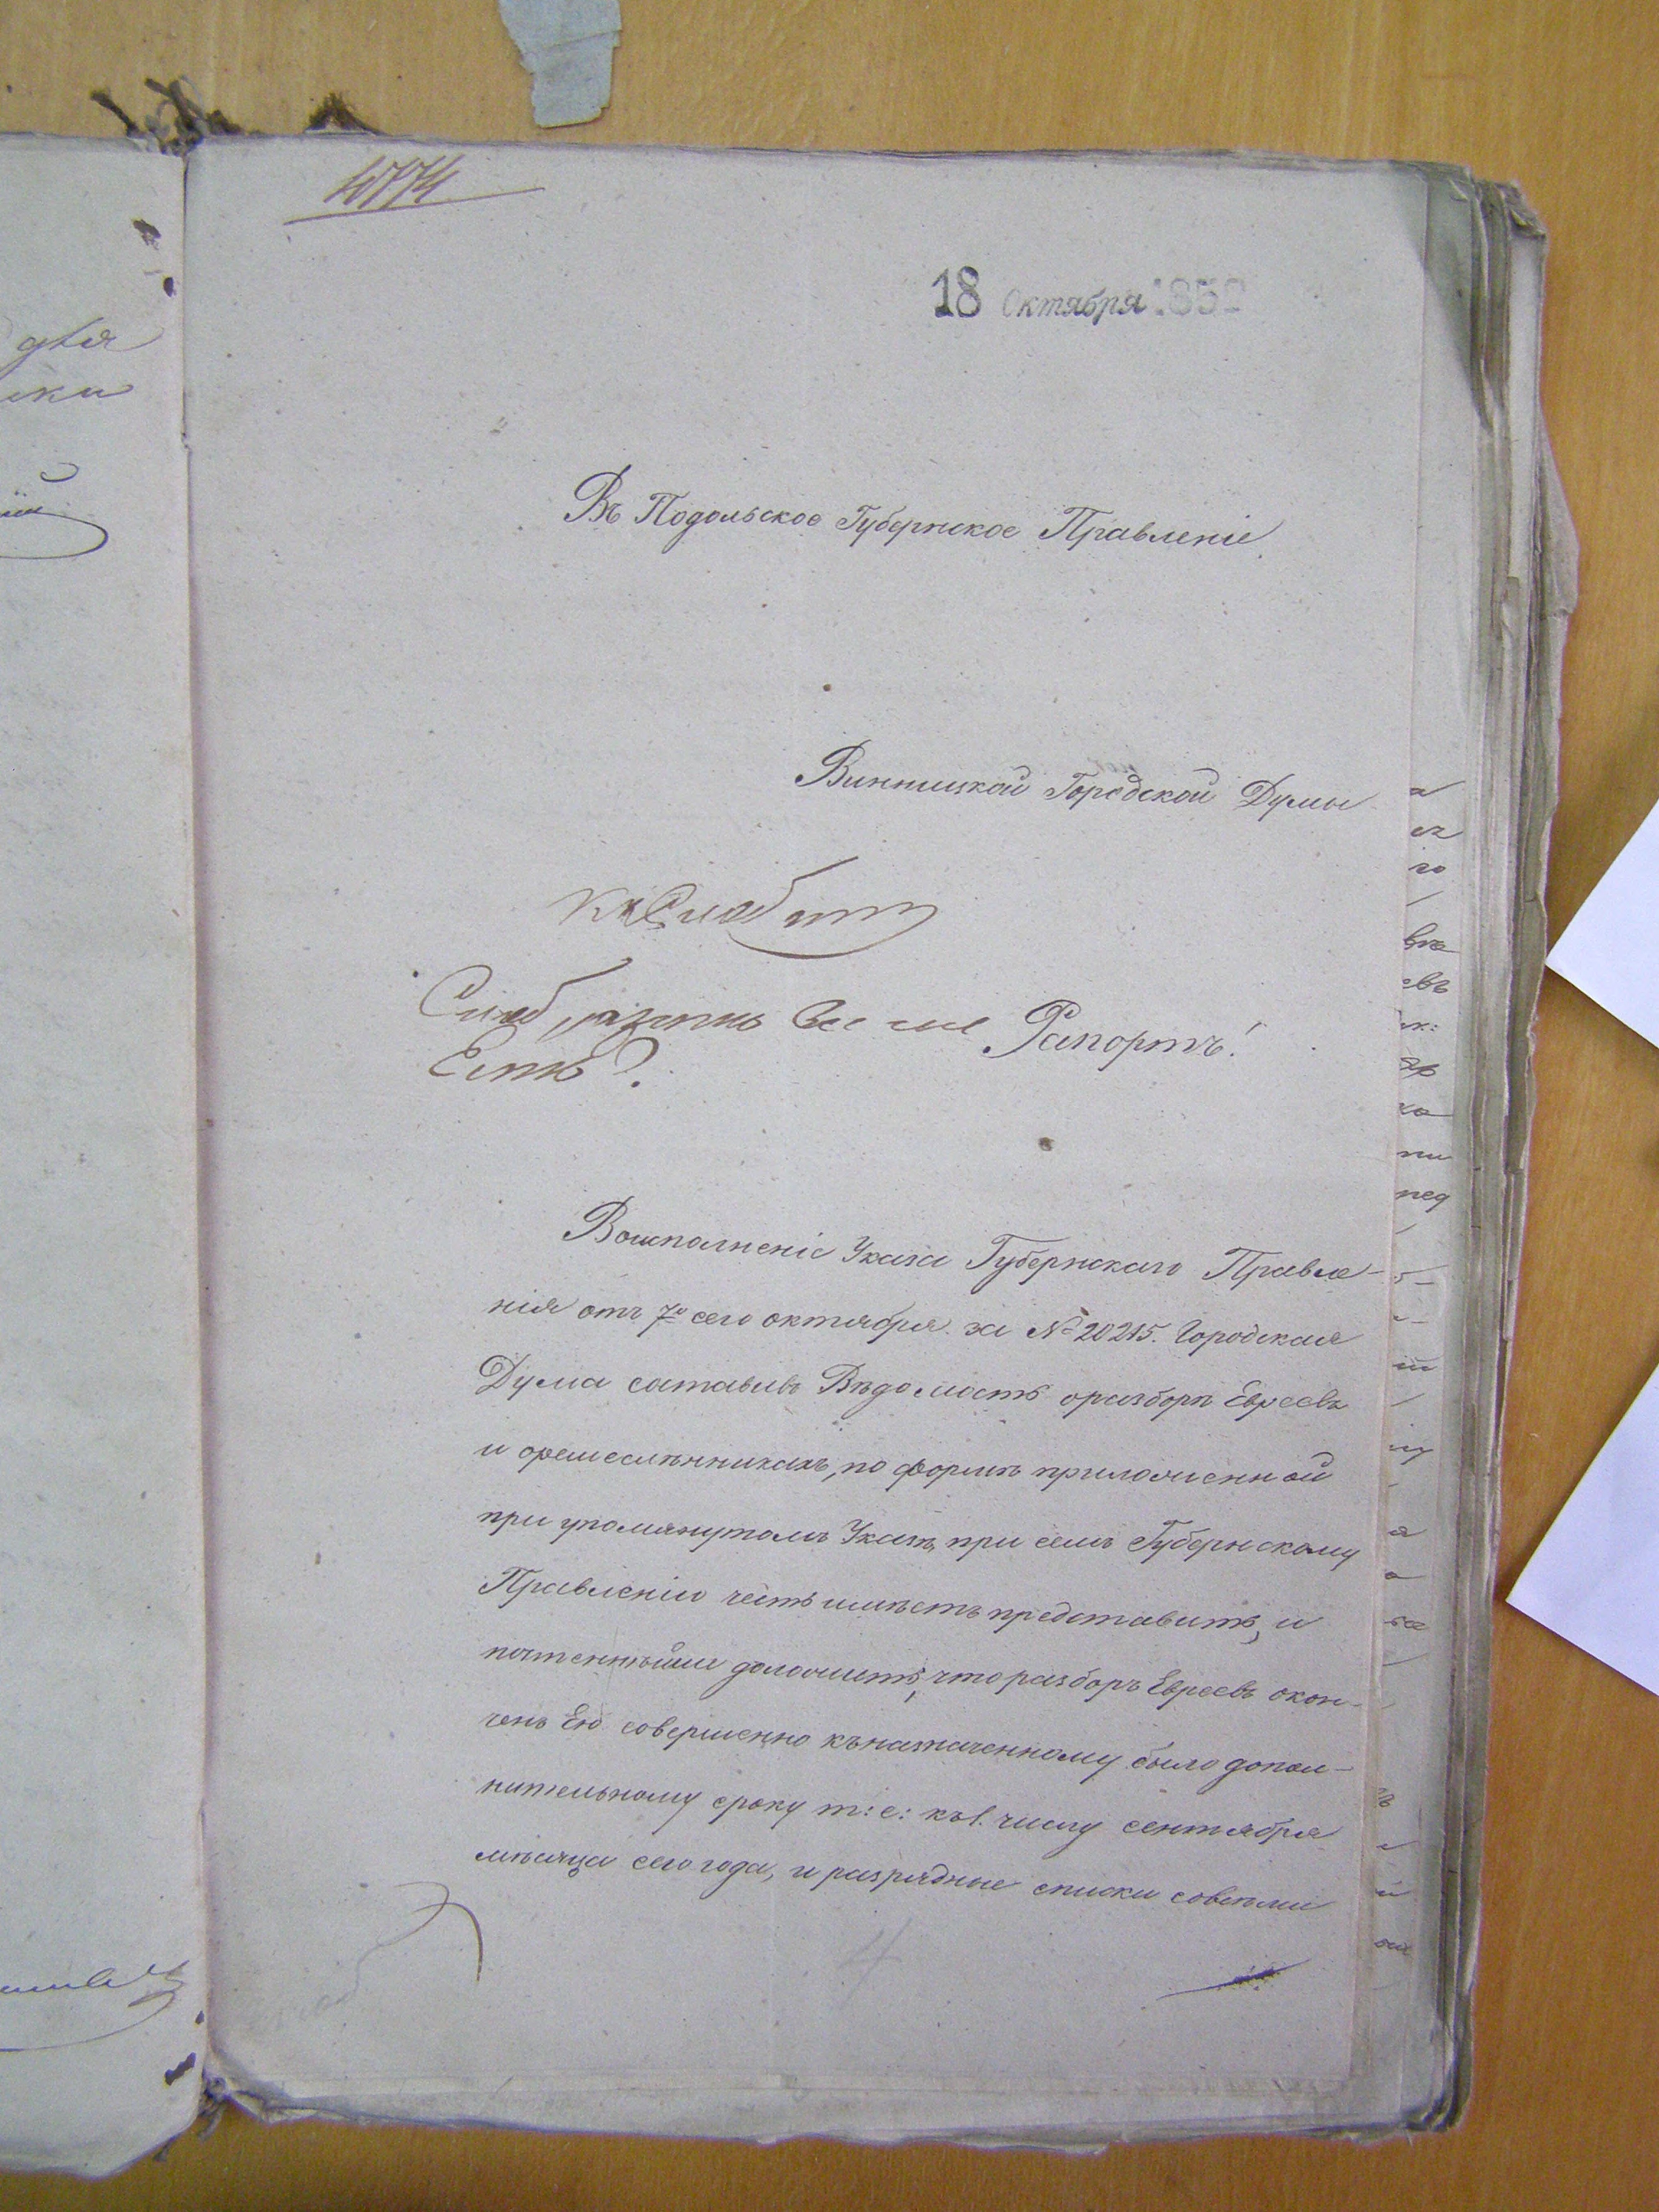 18 Октября 185
Въ Подольское Губернское Правленіе
Винницкой Городской Думы
Рапортъ!
Есть?
Воисполненіе Указа Губернскаго Правле-
нія отъ 7го сего октября за № 20215. Городская
Дума составивъ Вѣдомость оразборѣ Евреевъ
и оремеслѣнникахъ, по формѣ приложенной
при упомянутомъ Указѣ, при семъ Губернскому
Правленію честь имѣетъ представить, и
почтеннѣйше доложить, что разборъ Евреевъ окон-
ченъ Ею совершенно къназначенному было допол-
нительному сроку т: е: къ 1. числу сентября
мѣсяца сего года, и разрядные списки совсѣми
для
ски